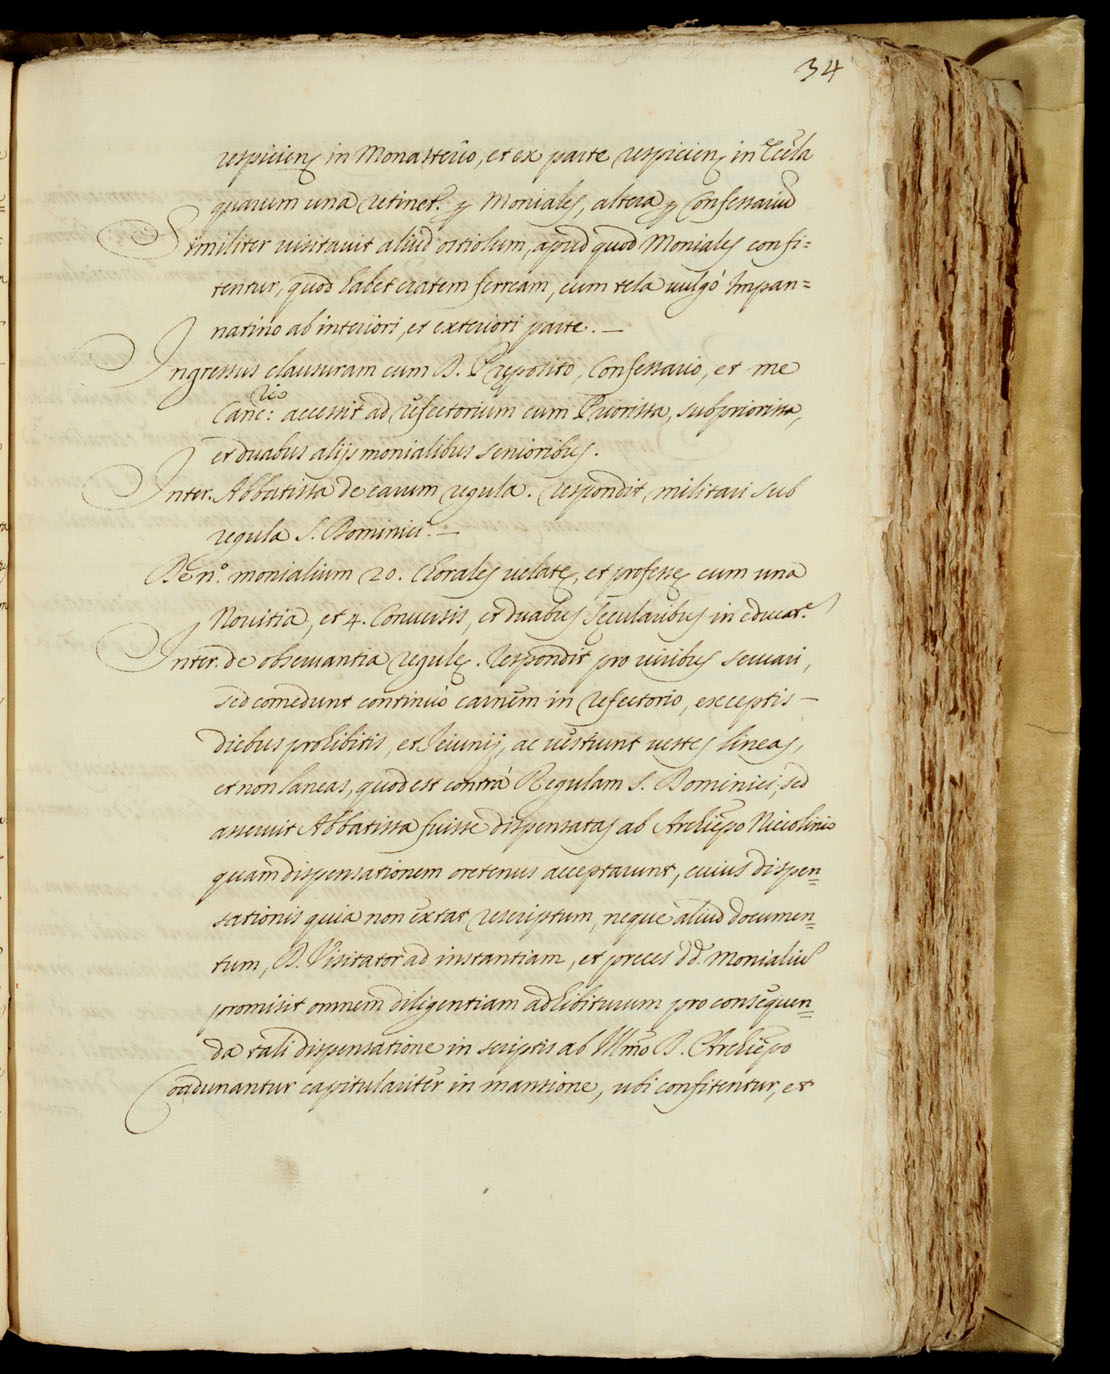 34
respicienʒ in Monasterio, et ex parte respicienʒ in Eccla
quarum una retinet.r p Moniales, altera p Confessariũ
Similiter uisitauit aliud ostiolum, apud quod Moniales confi=
tentur, quod habet cratem ferream, cum tela uulgò Impan=
natino ab interiori, et exteriori parte. —
Ingressus clausuram cum D. Preposito, Confessario, et me
Canc:rio accessit ad refectorium cum Priorissa, subpriorissa,
et duabus alijs monialibus senioribus.
Inter. Abbatissa de earum regula. respondit militari sub
regula S. Dominici. —
De n.o monialium 20. Chorales uelatę, et professę cum una
Nouitia, et 4. Conuersis, et duabus sęcularibus in educat.e
Inter. de obseruantia regulę. respondit pro uiribus seruari,
sed comedunt continuò carnem in refectorio, exceptis —
diebus prohibitis, et Ieiunij, ac uestiunt uestes lineas,
et non laneas, quod est contrà Regulam S. Dominici, sed
asseruit Abbatissa fuisse dispensatas ab Archiepõ Niccolinio
quam dispensationem oretenus acceptarunt, cuius dispen=
sationis quia non extat rescriptum, neque aliud documen=
tum, D. Visitator ad instantiam, et preces dd. monialiũ
promisit omnem diligentiam adhibiturum pro consequen=
da tali dispensatione in scriptis ab Illmõ D. Archiepõ
Coadunantur capitulariter in mansione, ubi confitentur, et